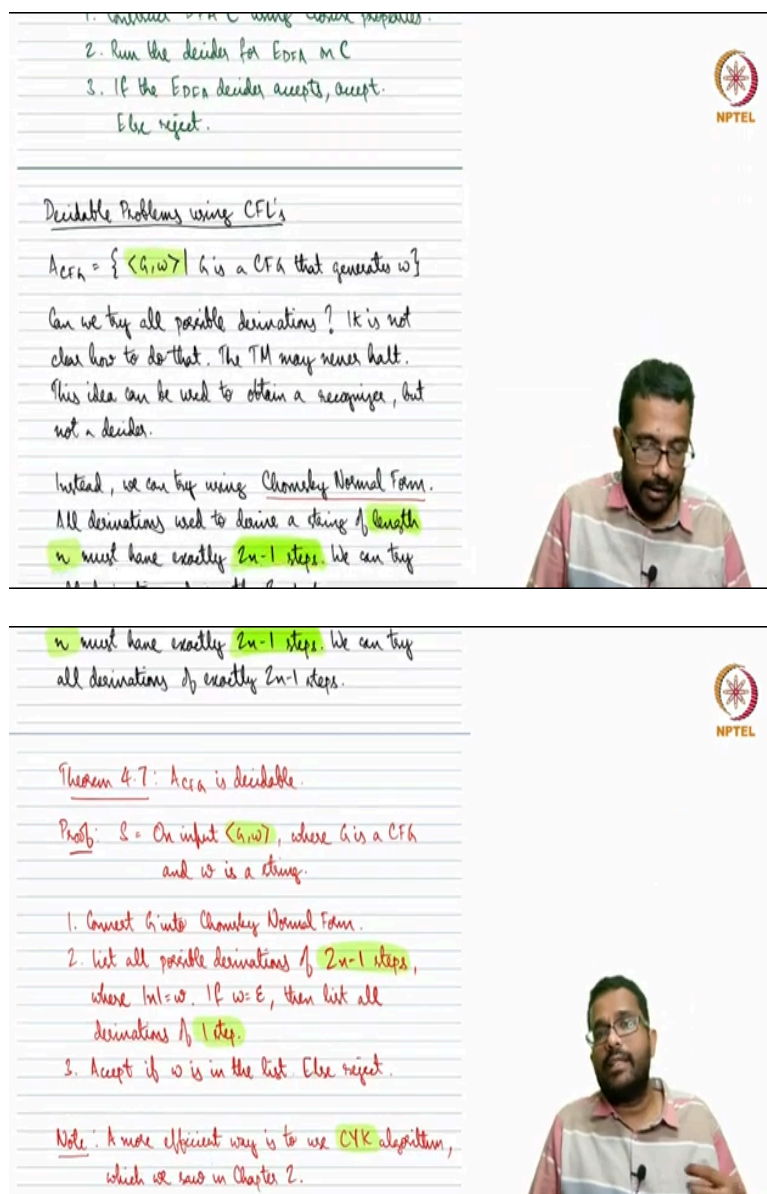 1. Construct DFA C using closure properties.
2. Run the decider for EDFA on C
3. If the EDFA decider accepts, accept.
Else reject.
NPTEL
Decidable Problems using CFL's
ACFG = { <G,w> | G is a CFG that generates w}
Can we try all possible derivations? It is not
clear how to do that. The TM may never halt.
This idea can be used to obtain a recognizer, but
not a decider.
Instead, we can try using Chomsky Normal Form.
All derivations used to derive a string of length
n must have exactly 2n-1 steps. We can try
n must have exactly 2n-1 steps. We can try
all derivations of exactly 2n-1 steps.
NPTEL
Theorem 4.7: ACFG is decidable.
Proof: S = On input <G,w>, where G is a CFG
and w is a string.
1. Convert G into Chomsky Normal Form.
2. List all possible derivations of 2n-1 steps,
where |n|=w. If w=ε, then list all
derivations of 1 step.
3. Accept if w is in the list. Else reject.
Note: A more efficient way is to use CYK algorithm,
which we saw in Chapter 2.